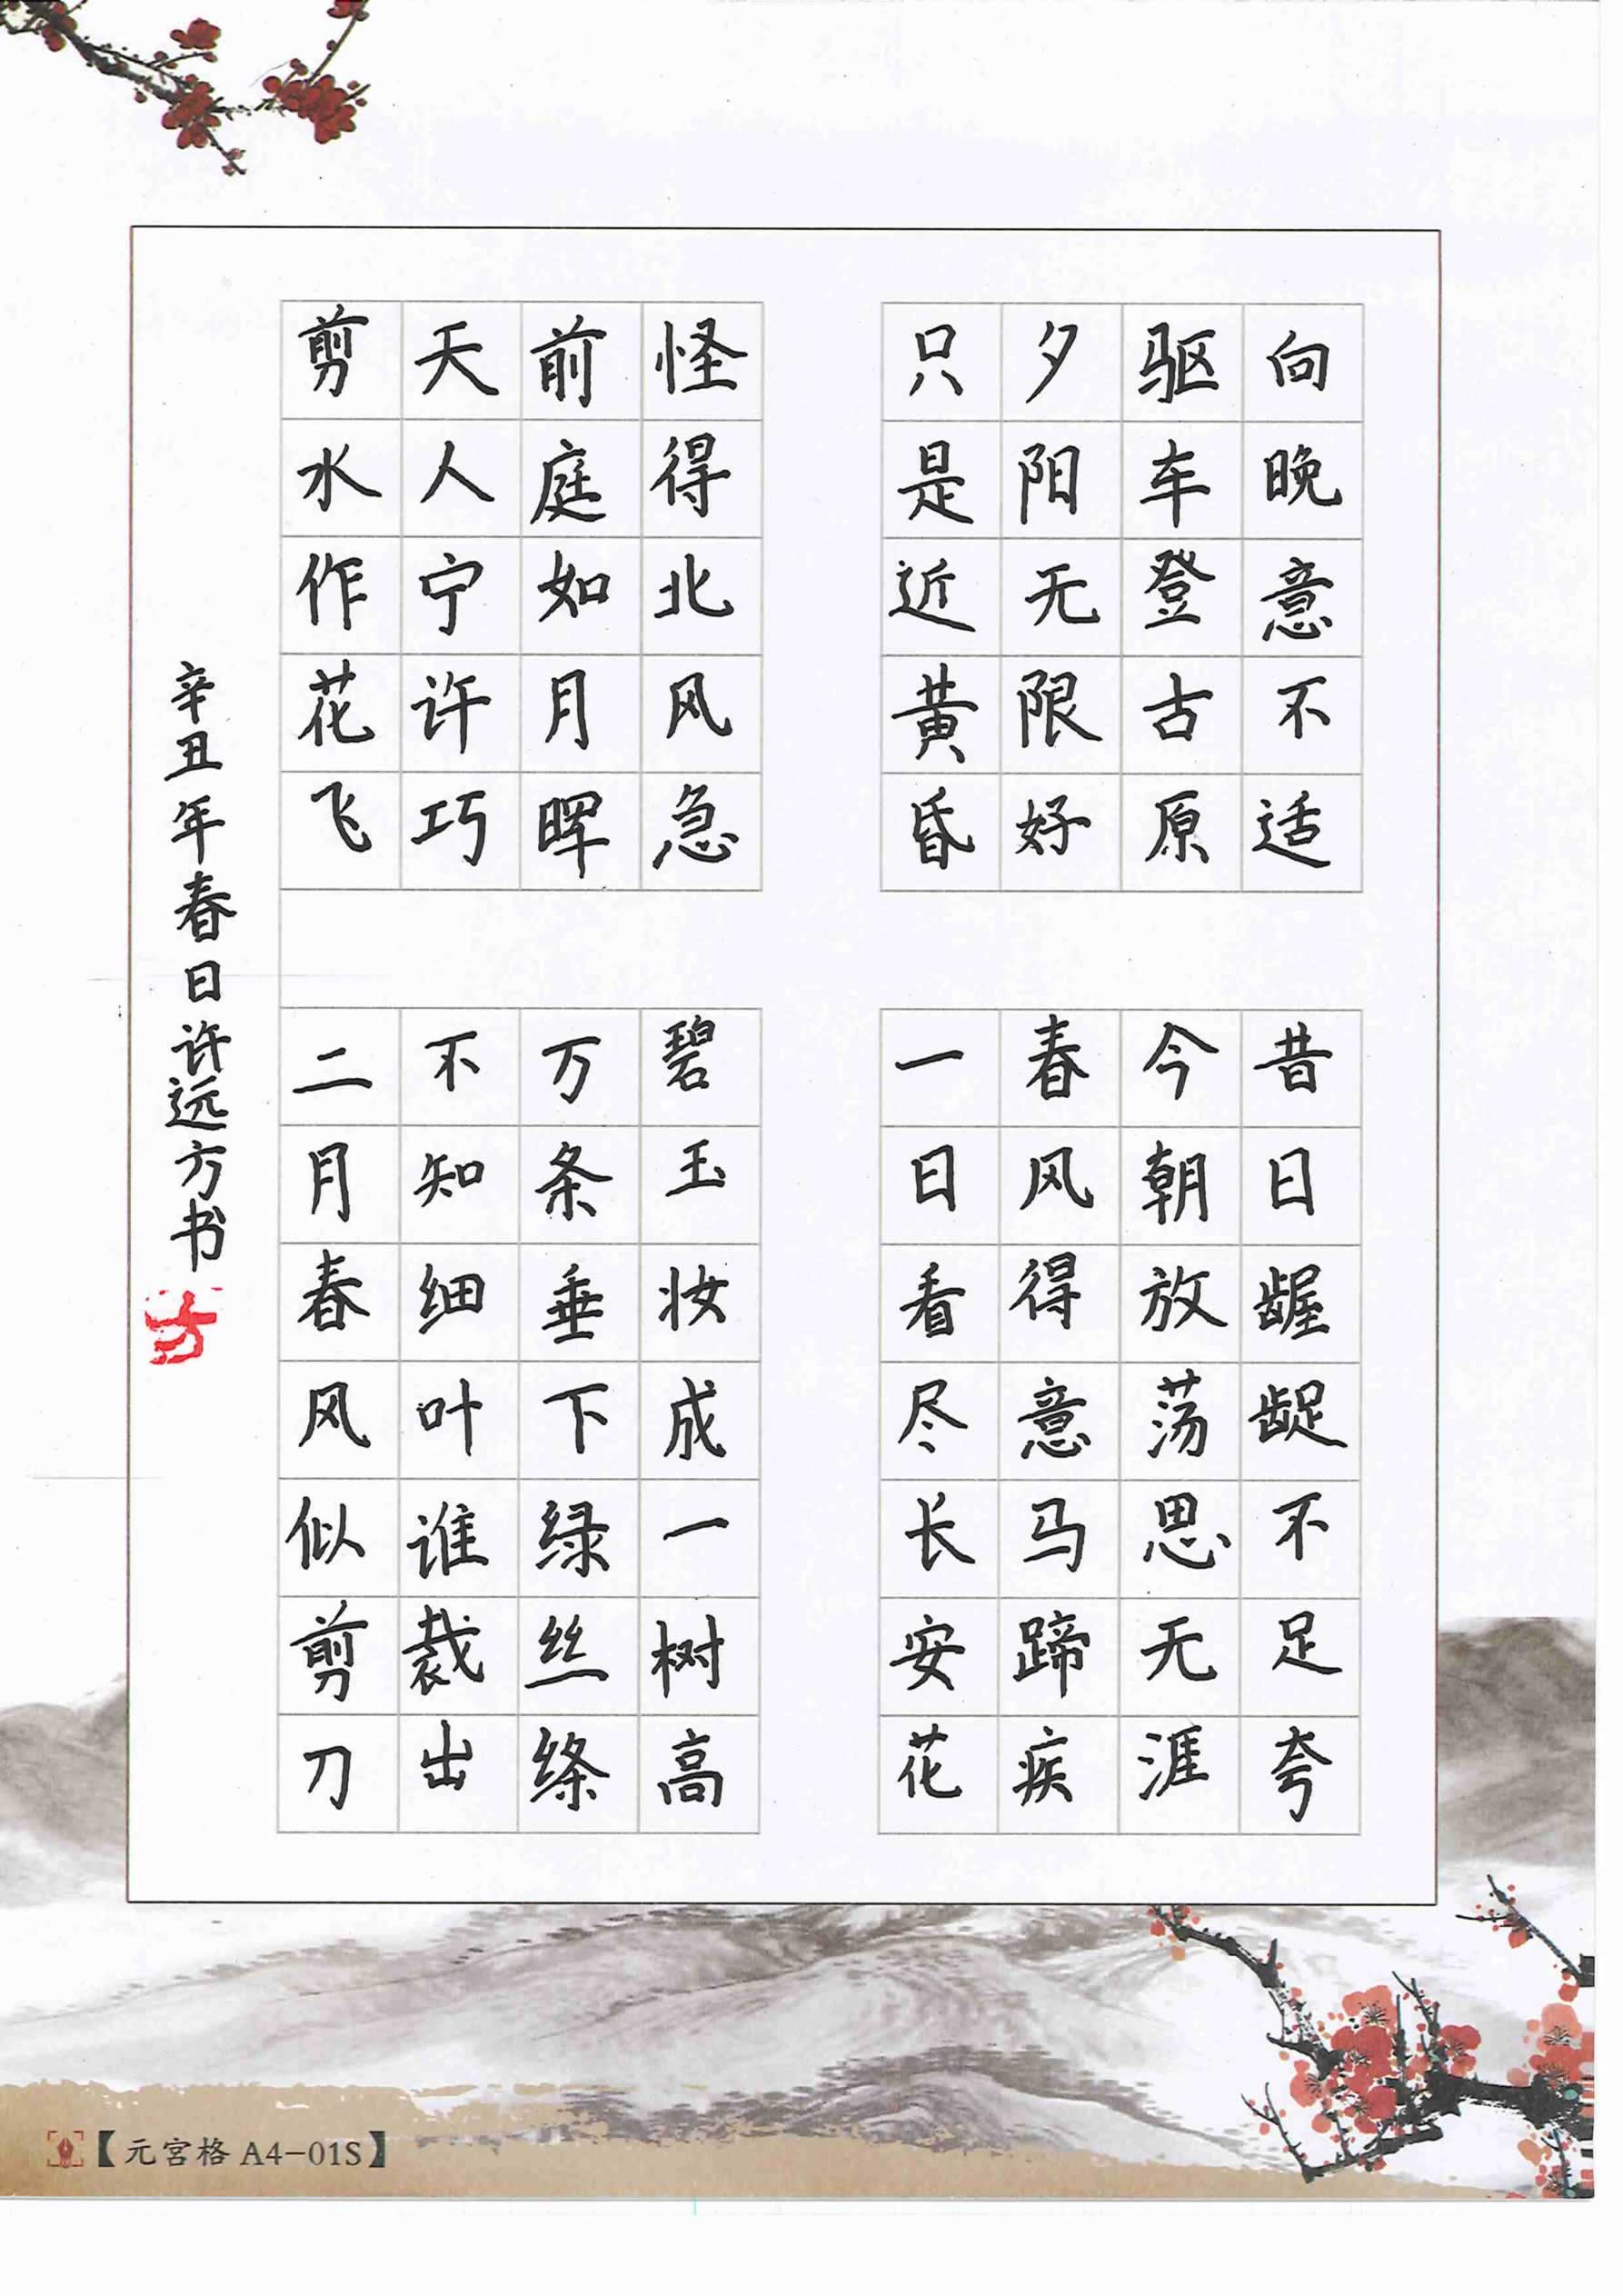 向晚意不适
驱车登古原
夕阳无限好
只是近黄昏
昔日龌龊不足夸
今朝放荡思无涯
春风得意马蹄疾
一日看尽长安花
怪得北风急
前庭如月晖
天人宁许巧
剪水作花飞
碧玉妆成一树高
万条垂下绿丝绦
不知细叶谁裁出
二月春风似剪刀
辛丑年春日许远方书
方
【元宫格 A4-01S】